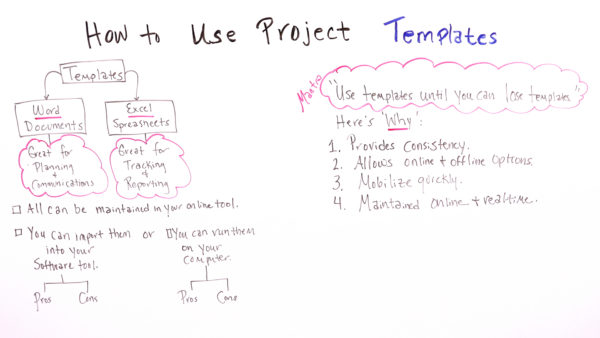 How to Use Project Templates
Templates
Word
Documents
Excel
Spreasheets
Great for
Planning
+
Communications
Great for
Tracking
&
Reporting
All can be maintained in your online tool.
You can import them or
into your
Software tool.
Pros Cons
You can run them
on your
Computer.
Pros Cons
Mantra
"Use templates until you can lose templates"
Here's "Why":
1. Provides consistency.
2. Allows online + offline options.
3. Mobilize quickly.
4. Maintained online + real-time.